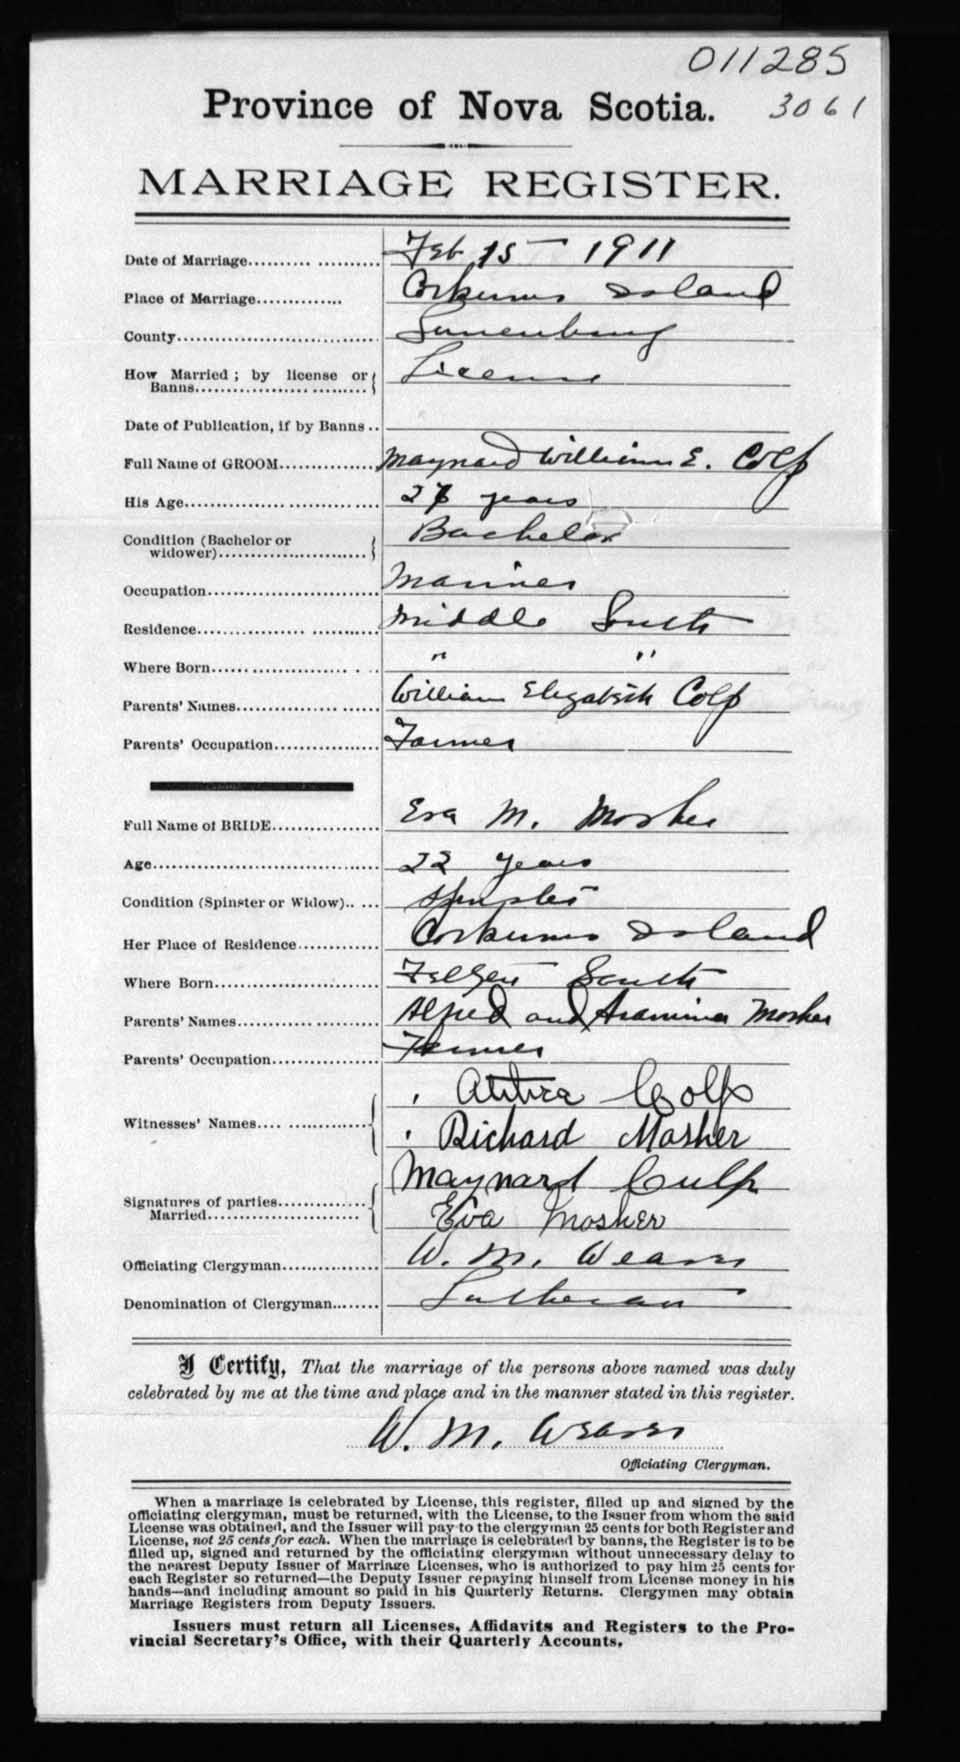 011285
Province of Nova Scotia. 3061
MARRIAGE REGISTER.
Date of Marriage.......... Feb 15 - 1911
Place of Marriage.............. Corkums Island
County.............................. Lunenburg
How Married ; by license or
Banns.......................... License
Date of Publication, if by Banns ..
Full Name of GROOM............... Maynard William E. Colp
His Age........................... years
Condition (Bachelor or
widower)........................ Bachelor
Occupation......................... Mariner
Residence.......................... Middle South
Where Born........................ " "
Parents' Names..................... William Elizabeth Colp
Parents' Occupation................ Farmer
Full Name of BRIDE................ Eva M. Mosher
Age.................................. 22 years
Condition (Spinster or Widow).. ... Spinster
Her Place of Residence............ Corkums Island
Where Born........................ South
Parents' Names..................... Alfred and Aramina Mosher
Parents' Occupation................ Farmer
Witnesses' Names.... .............. Colp
Richard Mosher
Signatures of parties.............
Married....................... Maynard Culp
Eva Mosher
Officiating Clergyman............... W. M. Weaver
Denomination of Clergyman........ Lutheran
I Certify, That the marriage of the persons above named was duly
celebrated by me at the time and place and in the manner stated in this register.
W. M. Weaver
Officiating Clergyman.
When a marriage is celebrated by License, this register, filled up and signed by the
officiating clergyman, must be returned, with the License, to the Issuer from whom the said
License was obtained, and the Issuer will pay to the clergyman 25 cents for both Register and
License, not 25 cents for each. When the marriage is celebrated by banns, the Register is to be
filled up, signed and returned by the officiating clergyman without unnecessary delay to
the nearest Deputy Issuer of Marriage Licenses, who is authorized to pay him 25 cents for
each Register so returned—the Deputy Issuer repaying himself from License money in his
hands—and including amount so paid in his Quarterly Returns. Clergymen may obtain
Marriage Registers from Deputy Issuers.
Issuers must return all Licenses, Affidavits and Registers to the Pro-
vincial Secretary's Office, with their Quarterly Accounts.